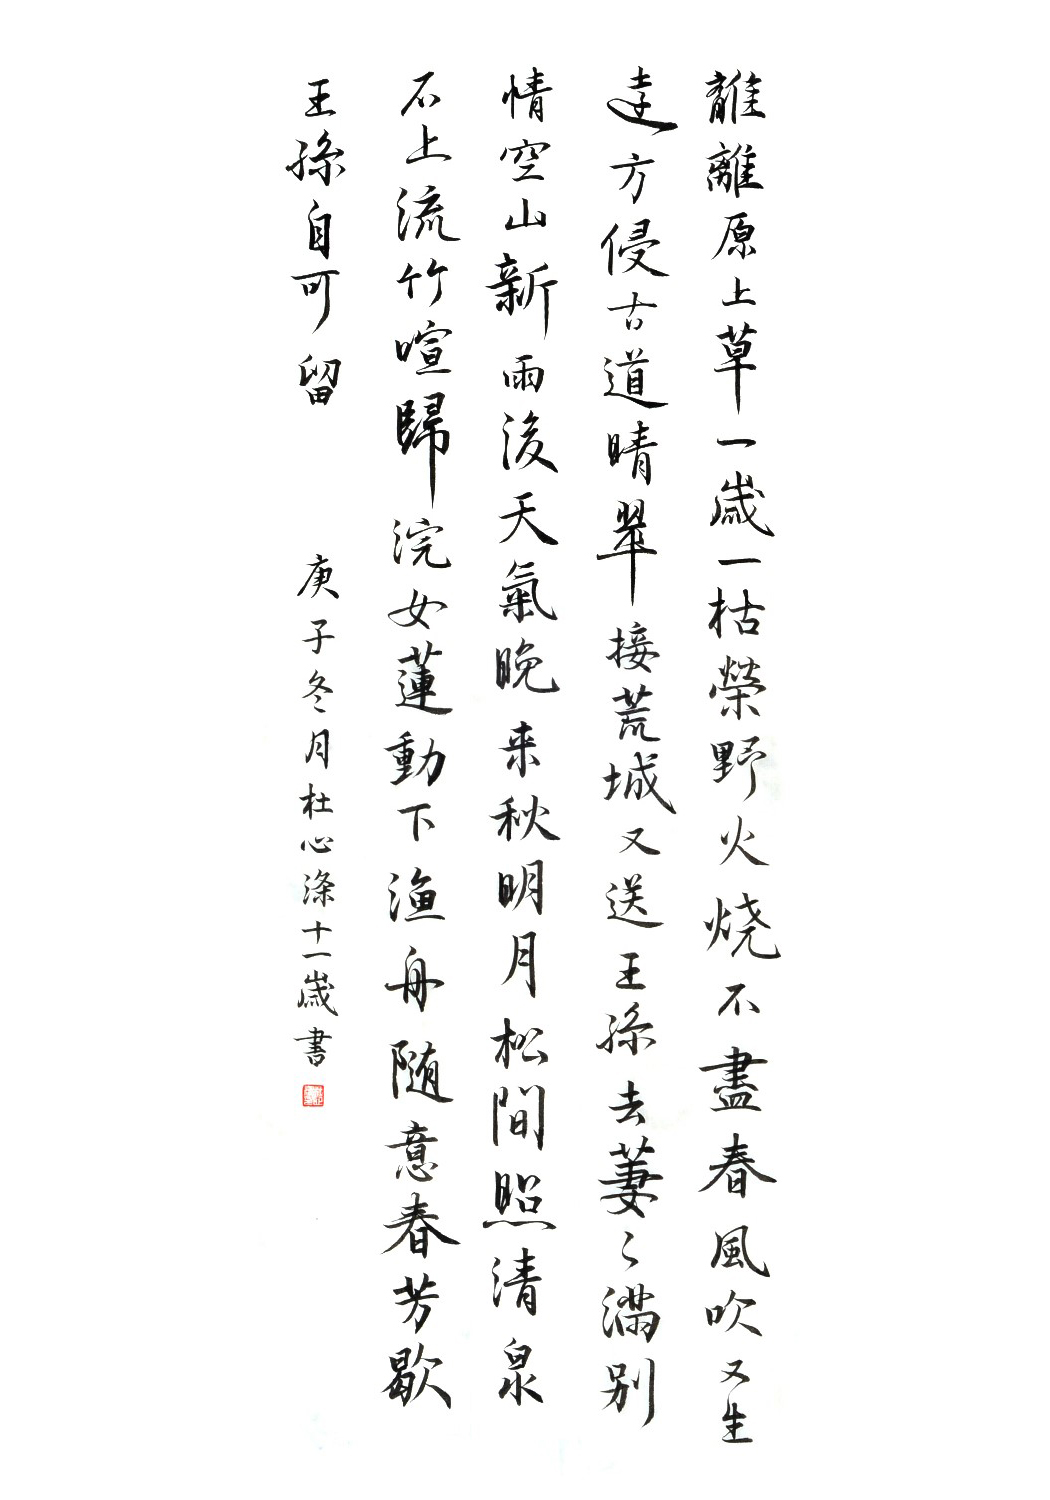 離離原上草一歲一枯榮野火烧不盡春風吹又生
遠方侵古道晴翠接荒城又送王孫去萋〻滿别
情空山新雨後天氣晚来秋明月松間照清泉
石上流竹喧歸浣女蓮動下渔舟随意春芳歇
王孫自可留
庚子冬月杜心滌十一歲書